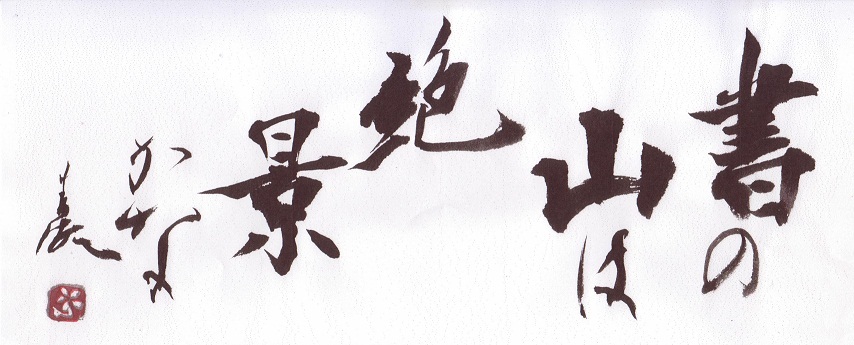 書の
山は
絶
景
かな